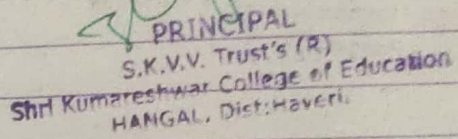 PRINCIPAL
S.K.V.V. Trust's (R)
Shri Kumareshwar College of Education
HANGAL, Dist: Haveri.